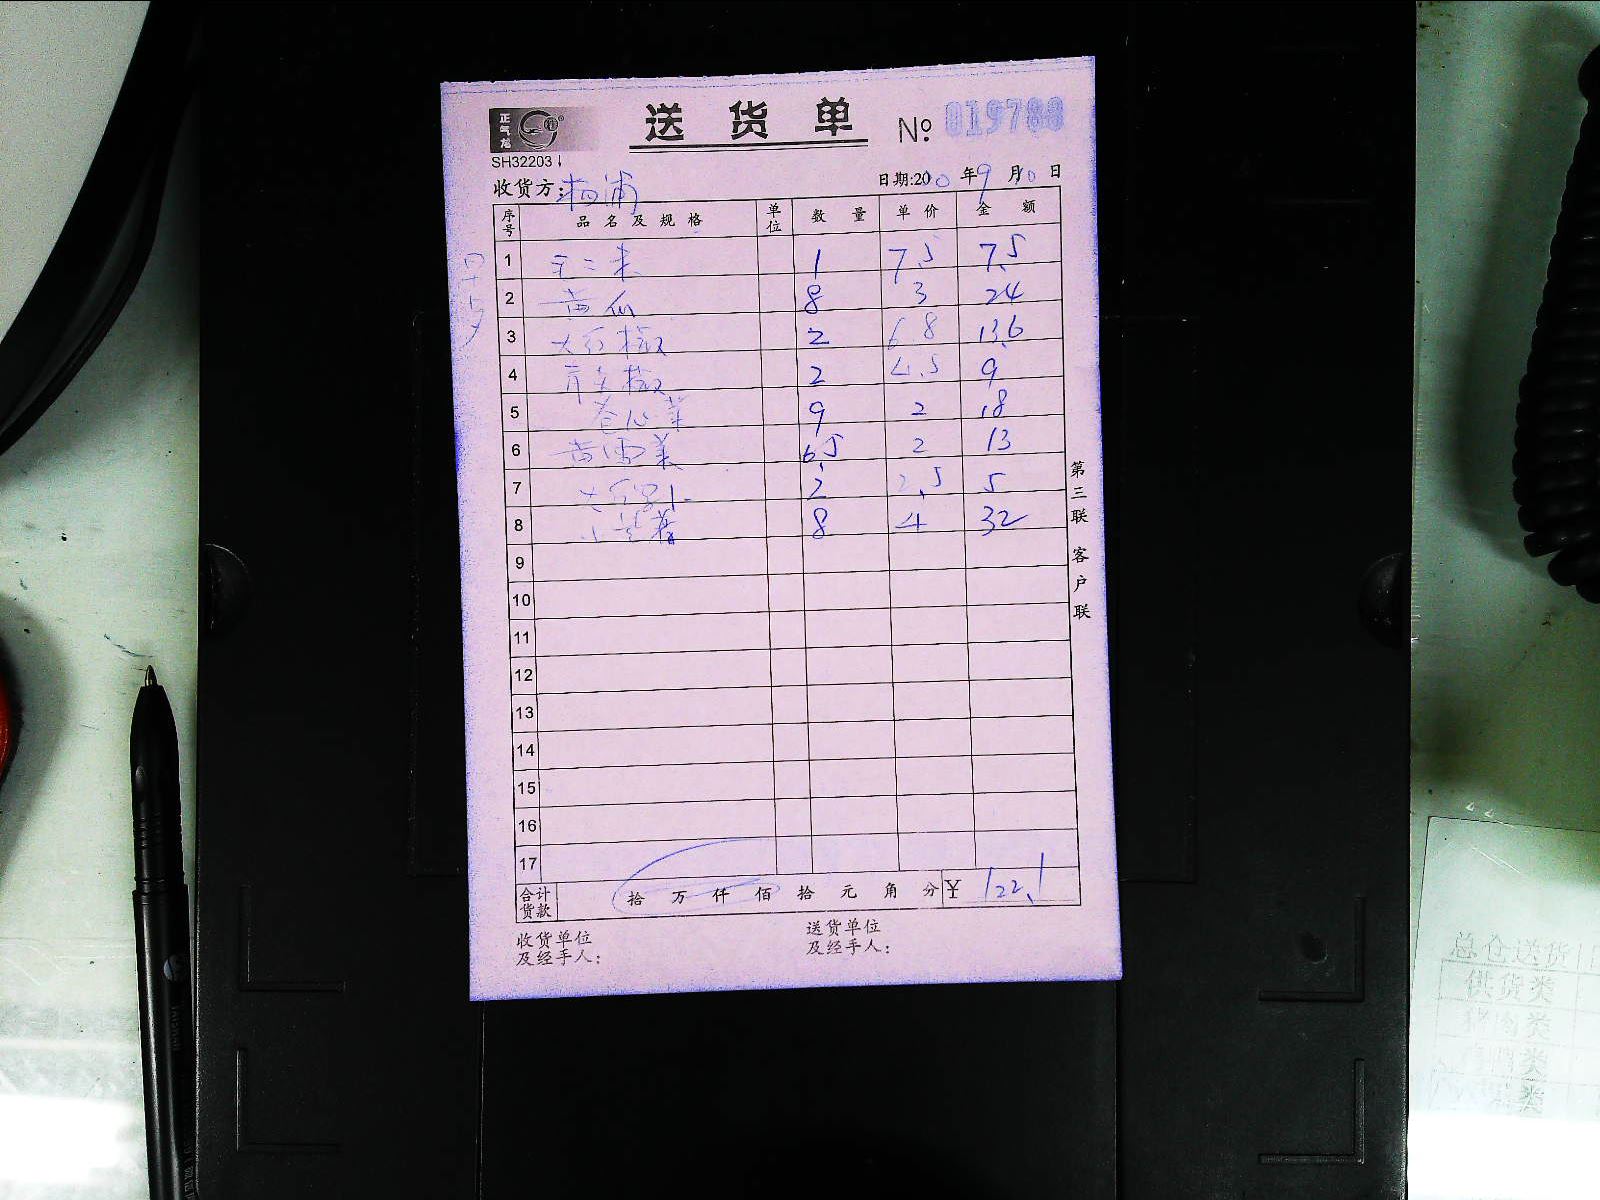 正气龙
送货单 № 019788
SH32203
收货方:
日期:20 年9月10日
序号 品名及规格 单位 数量 单价 金额
1 1 7.5 7.5
2 黄瓜 8 3 24
3 大红椒 2 6.8 13.6
4 青尖椒 2 4.5 9
5 卷心菜 9 2 18
6 6.5 2 13
7 2 2.5 5
8 8 4 32
9
10
11
12
13
14
15
16
17
合计货款 拾 万 仟 佰 拾 元 角 分 ¥ 122.1
收货单位
及经手人:
送货单位
及经手人:
第三联 客户联
总仓送货
供货类
猪肉类
类
类